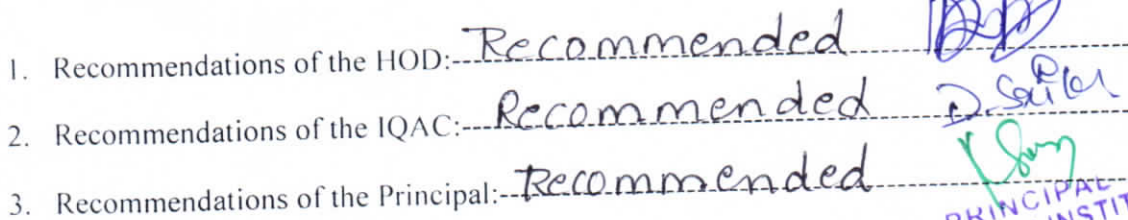 1. Recommendations of the HOD:- Recommended
2. Recommendations of the IQAC:- Recommended
3. Recommendations of the Principal:- Recommended
PRINCIPAL